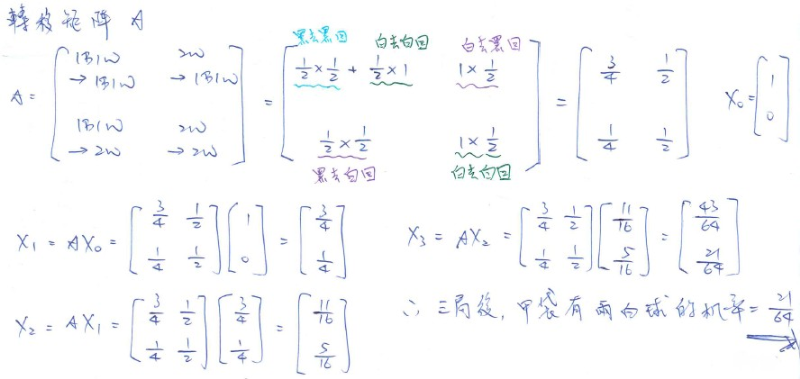 轉移矩陣 A
黑去黑回 白去白回 白去黑回
A = [ 1B1W → 1B1W 2W → 1B1W ; 1B1W → 2W 2W → 2W ] = [ 1/2 × 1/2 + 1/2 × 1 1 × 1/2 ; 1/2 × 1/2 1 × 1/2 ] = [ 3/4 1/2 ; 1/4 1/2 ] X₀ = [ 1 ; 0 ]
黑去白回 白去白回
X₁ = AX₀ = [ 3/4 1/2 ; 1/4 1/2 ] [ 1 ; 0 ] = [ 3/4 ; 1/4 ]
X₂ = AX₁ = [ 3/4 1/2 ; 1/4 1/2 ] [ 3/4 ; 1/4 ] = [ 11/16 ; 5/16 ]
X₃ = AX₂ = [ 3/4 1/2 ; 1/4 1/2 ] [ 11/16 ; 5/16 ] = [ 43/64 ; 21/64 ]
∴ 三局後, 甲袋有兩白球的机率 = 21/64